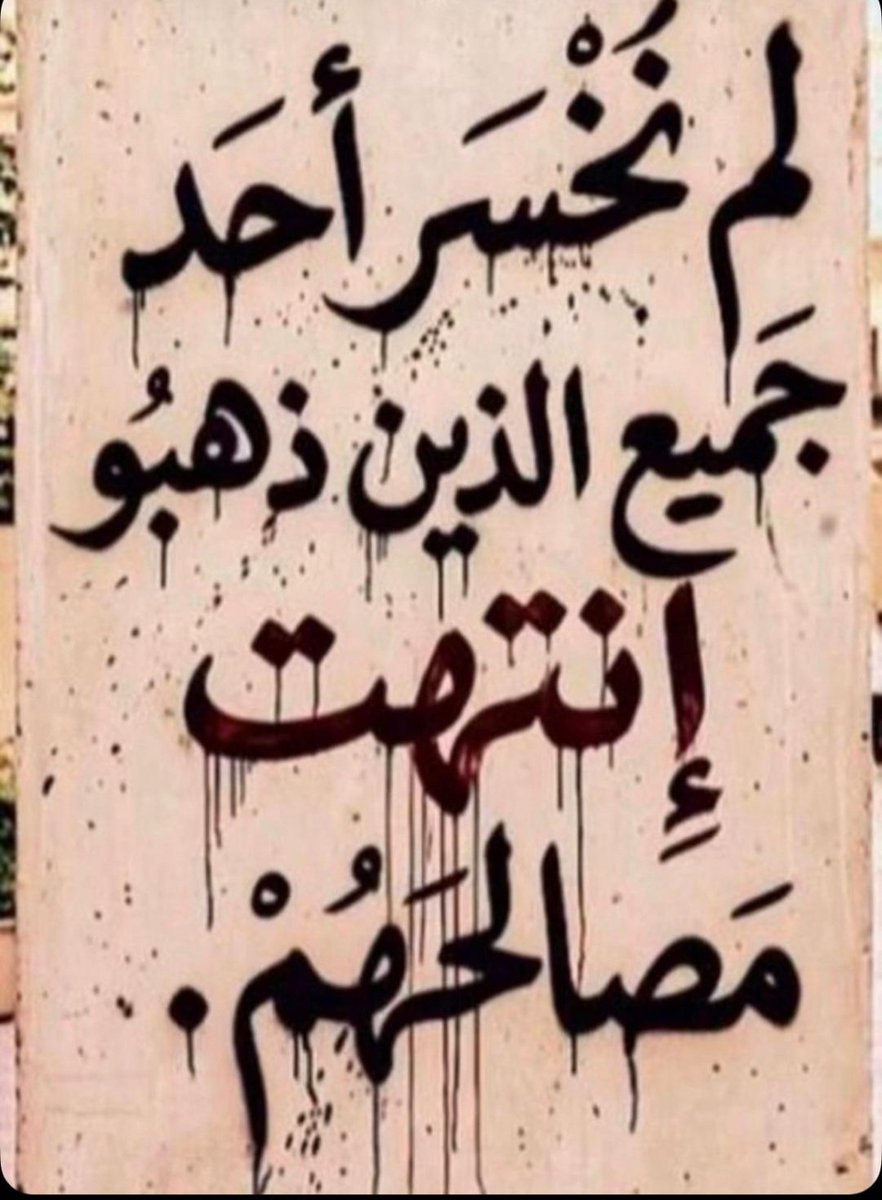 لم نُخْسَر أحَد
جَميع الذين ذهبُو
إِنتهت
مَصالحَهُمْ.